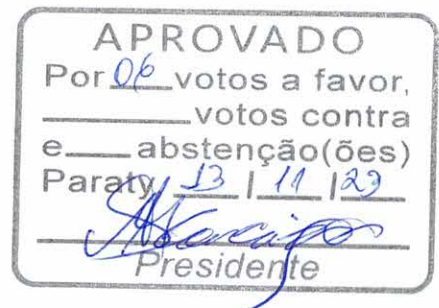 APROVADO
Por 06 votos a favor,
votos contra
e abstenção(ões)
Paraty, 13 | 11 | 23
Presidente